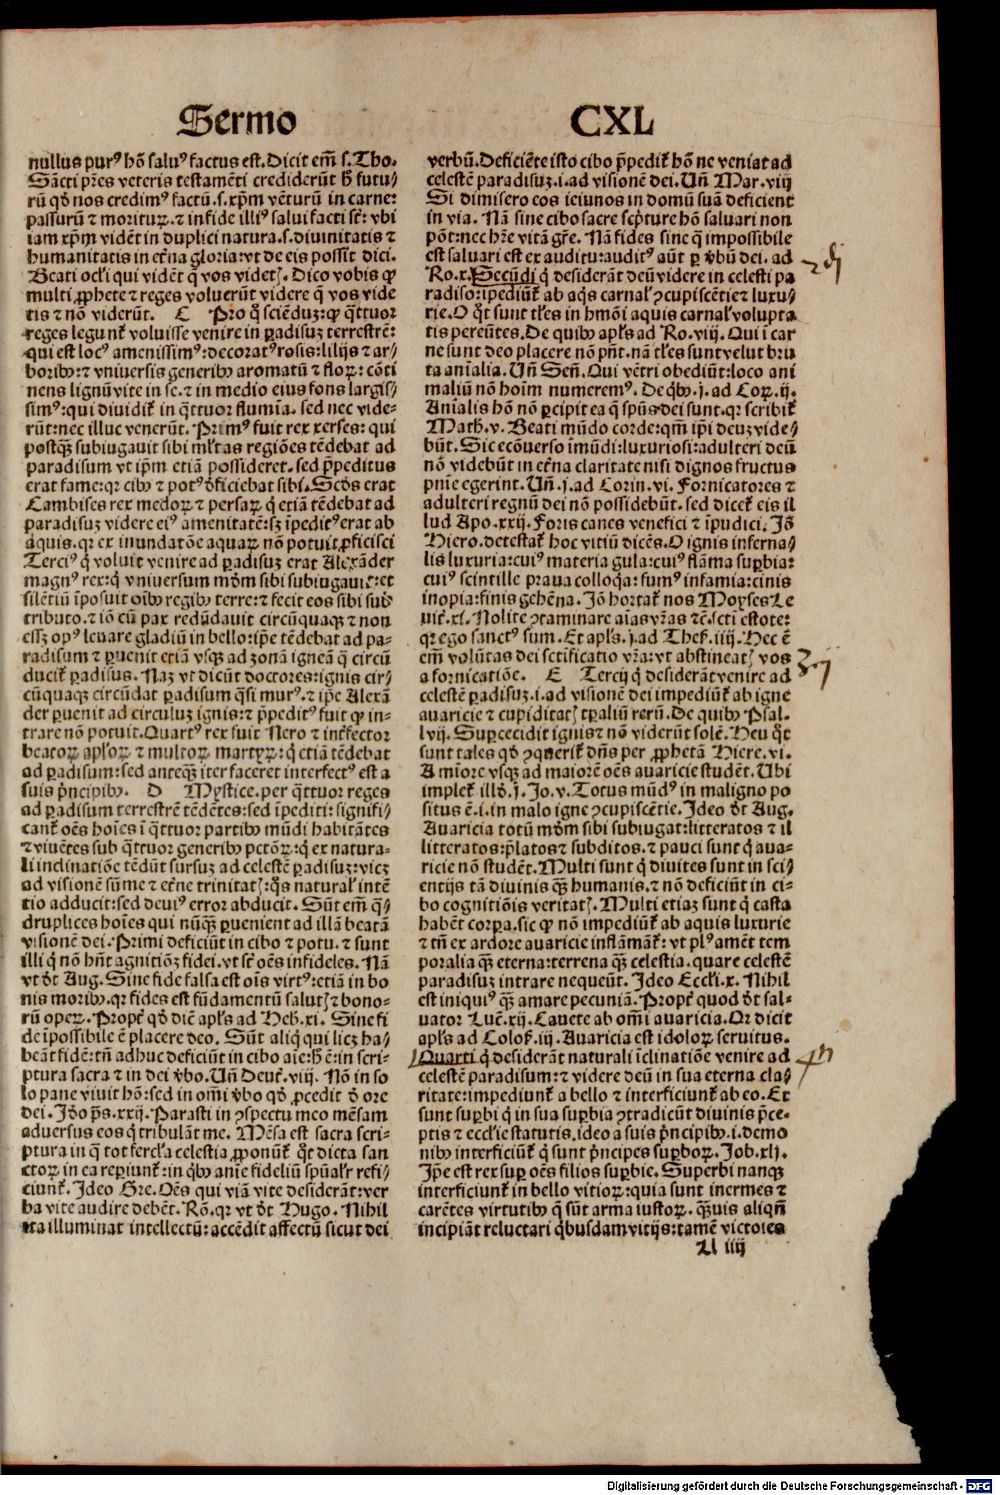 Sermo CXL
nullus purꝰ hõ saluꝰ factus est. Dicit em̃ s. Tho.
Sãcti pr̃es veteris testamẽti crediderũt ħ futu/
rũ qđ nos credimꝰ factũ. s. xp̃m vẽturũ in carne:
passurũ ⁊ moriturꝝ. ⁊ in fide illiꝰ salui facti sr̃: vbi
iam xp̃m vidẽt in duplici natura. s. diuinitatis ⁊
humanitatis in et̃na gloria: vt de eis possit dici.
Beati ocľi qui vidẽt q̃ vos videtꝭ. Dico vobis ꝙ
multi ꝓphete ⁊ reges voluerũt videre q̃ vos vide
tis ⁊ nõ viderũt. C Pro q̃ sciẽduꝫ: ꝙ q̃ttuor
reges legunt̃ voluisse venire in ꝑadisuꝫ terrestrẽ:
qui est locꝰ amenissimꝰ: decoratꝰ rosis: lilijs ⁊ ar/
boribꝰ: ⁊ vniuersis generibꝰ aromatũ ⁊ floꝝ: cõti
nens lignũ vite in se. ⁊ in medio eius fons largis/
simꝰ: qui diuidit̃ in q̃ttuor flumĩa. sed nec vide-
rũt: nec illuc venerũt. Primꝰ fuit rex xerses: qui
postqꝫ subiugauit sibi ml̃tas regiões tẽdebat ad
paradisum vt ip̃m etiã possideret. sed p̃peditus
erat fame: qꝛ cibꝰ ⁊ potꝰ đficiebat sibi. Scđs erat
Cambises rex medoꝝ ⁊ persaꝝ q̃ etiã tẽdebat ad
paradisuꝫ videre eiꝰ amenitatẽ: sꝫ ĩpeditꝰ erat ab
aquis. qꝛ ex inundatõe aquaꝝ nõ potuit ꝓficisci
Terciꝰ q̃ voluit venire ad ꝑadisuꝫ erat Alexãder
magnꝰ rex: q̃ vniuersum mđm sibi subiugauit: et
silẽtiũ ĩposuit oĩbꝰ regibꝰ terre: ⁊ fecit eos sibi sub
tributo. ⁊ iõ cũ pax redũdauit circũquaqꝫ ⁊ non
essꝫ opꝰ leuare gladiũ in bello: ip̃e tẽdebat ad pa-
radisum ⁊ ꝑuenit etiã vsqꝫ ad zonã igneã q̃ circũ
ducit̃ ꝑadisus. Naꝫ vt dicũt doctores: ignis cir/
cũquaqꝫ circũdat ꝑadisum q̃si murꝰ. ⁊ ip̃e Alexã
der ꝑuenit ad circuluꝫ ignis: ⁊ p̃peditꝰ fuit ꝙ in-
trare nõ potuit. Quartꝰ rex fuit Nero ⁊ int̃fector
beatoꝝ apl̃oꝝ ⁊ multoꝝ martyꝝ: q̃ etiã tẽdebat
ad ꝑadisum: sed anteqꝫ iter faceret interfectꝰ est a
suis p̃ncipibꝰ. D Mystice. per q̃ttuor reges
ad ꝑadisum terrestrẽ tẽdẽtes: sed ĩpediti: signifi/
cant̃ oẽs hoĩes ĩ q̃ttuor partibꝰ mũdi habitãtes
⁊ viuẽtes sub q̃ttuor generibꝰ pctõꝝ: q̃ ex natura-
li inclinatiõe tẽdũt sursuꝫ ad celestẽ ꝑadisuꝫ: vicꝫ
ad visionẽ sũme ⁊ et̃ne trinitatꝭ: q̃s natural̃ intẽ
tio adducit: sed deuiꝰ error abducit. Sũt em̃ q̃/
druplices hoĩes qui nũqꝫ ꝑuenient ad illã beatã
visionẽ dei. Primi deficiũt in cibo ⁊ potu. ⁊ sunt
illi q̃ nõ hñt agnitiõꝫ fidei. vt sr̃ oẽs infideles. Nã
vt đt Aug. Sine fide falsa est oĩs virtꝰ: etiã in bo
nis moribꝰ. qꝛ fides est fũdamentũ salutꝭ ⁊ bono-
rũ opeꝝ. Propt̃ qđ dic̃ apl̃s ad Heb. xi. Sine fi
de ĩpossibile ẽ placere deo. Sũt aliq̃ qui licꝫ ha/
beãt fidẽ: tñ adhuc deficiũt in cibo aĩe: ħ ẽ: in scri-
ptura sacra ⁊ in dei v̓bo. Uñ Deut̃. viij. Nõ in so
lo pane viuit hõ: sed in om̃i v̓bo qđ ꝓcedit đ ore
dei. Iđo p̃s. xxij. Parasti in ꝯspectu meo mẽsam
aduersus eos q̃ tribulãt me. Mẽsa est sacra scri-
ptura in q̃ tot fercľa celestia ꝓponũt̃ q̃t dicta san
ctoꝝ in ea reꝑiunt̃: in q̃bꝰ anĩe fideliũ spũal̃r refi/
ciunt̃. Ideo Gre. Oẽs qui viã vite desiderãt: ver
ba vite audire debẽt. Rõ. qꝛ vt đt Hugo. Nihil
ita illuminat intellectũ: accẽdit affectũ sicut dei
verbũ. Deficiẽte isto cibo p̃pedit̃ hõ ne veniat ad
celestẽ paradisuꝫ. i. ad visionẽ dei. Uñ Mar. viij
Si dimisero eos ieiunos in domũ suã deficient
in via. Nã sine cibo sacre scp̃ture hõ saluari non
põt: nec hr̃e vitã gr̃e. Nã fides sine q̃ impossibile
est saluari est ex auditu: auditꝰ aũt ꝑ v̓bũ dei. ad
Ro. x. Secũdi q̃ desiderãt deũ videre in celesti pa
radiso: ipediũt̃ ab aq̃s carnal̃ ꝯcupiscẽtie ⁊ luxu/
rie. O q̃t sunt tl̃es in hmõi aquis carnal̃ volupta
tis pereũtes. De quibꝰ apl̃s ad Ro. viij. Qui ĩ car
ne sunt deo placere nõ pñt. nã tl̃es sunt velut bru
ta anĩalia. Uñ Señ. Qui vẽtri obediũt: loco ani
maliũ nõ hoĩm numeremꝰ. De q̃bꝰ. j. ad Coꝝ. ij.
Anĩalis hõ nõ ꝑcipit ea q̃ spũs dei sunt. qꝛ scribit̃
Math. v. Beati mũdo corde: qm̃ ip̃i deuꝫ vide/
bũt. Sic ecõuerso ĩmũdi: luxuriosi: adulteri deũ
nõ videbũt in et̃na claritate nisi dignos fructus
pnĩe egerint. Uñ. j. ad Corin. vi. Fornicatores ⁊
adulteri regnũ dei nõ possidebũt. sed dicet̃ eis il
lud Apo. xxij. Foris canes venefici ⁊ ĩpudici. Iõ
Hiero. detestat̃ hoc vitiũ dicẽs. O ignis inferna/
lis luxuria: cuiꝰ materia gula: cuiꝰ flãma suꝑbia:
cuiꝰ scintille praua colloq̃a: fumꝰ infamia: cinis
inopia: finis gehẽna. Iõ hortat̃ nos Moyses Le
uit̃. xi. Nolite ꝯtaminare aĩas vr̃as ⁊c̃. scti estote:
qꝛ ego sanctꝰ sum. Et apl̃s. j. ad Thes̃. iiij. Hec ẽ
em̃ volũtas dei sctĩficatio vr̃a: vt abstineatꝭ vos
a fornicatiõe. E Tercij q̃ desiderãt venire ad
celestẽ ꝑadisuꝫ. i. ad visionẽ dei impediũt̃ ab igne
auaricie ⁊ cupiditatꝭ tꝑaliũ rerũ. De quibꝰ Psal.
lvij. Suꝑcecidit ignis ⁊ nõ viderũt solẽ. Heu q̃t
sunt tales qđ ꝯq̃nerit̃ dñs per ꝓphetã Hiere. vi.
A mĩore vsqꝫ ad maiorẽ oẽs auaricie studẽt. Ubi
implet̃ illđ. j. Io. v. Totus mũdꝰ in maligno po
situs ẽ. i. in malo igne ꝯcupiscẽtie. Ideo đt Aug.
Auaricia totũ mđm sibi subiugat: litteratos ⁊ il
litteratos: p̃latos ⁊ subditos. ⁊ pauci sunt q̃ aua-
ricie nõ studẽt. Multi sunt q̃ diuites sunt in sci/
entijs tã diuinis qꝫ humanis. ⁊ nõ deficiũt in ci-
bo cognitiõis veritatꝭ. Multi etiaꝫ sunt q̃ casta
habẽt corꝑa. sic ꝙ nõ impediũt̃ ab aquis luxurie
⁊ tñ ex ardore auaricie inflãmãt̃: vt plꝰ amẽt tem
poralia qꝫ eterna: terrena qꝫ celestia. quare celestẽ
paradisuꝫ intrare nequeũt. Ideo Eccľi. x. Nihil
est iniquiꝰ qꝫ amare pecuniã. Propt̃ quod đt sal-
uator Luc̃. xij. Cauete ab om̃i auaricia. Qr dicit
apl̃s ad Colos̃. iij. Auaricia est idoloꝝ seruitus.
Quarti q̃ desiderãt naturali ĩclinatiõe venire ad
celestẽ paradisum: ⁊ videre deũ in sua eterna cla/
ritate: impediunt̃ a bello ⁊ interficiunt̃ ab eo. Et
sunt suꝑbi q̃ in sua suꝑbia ꝯtradicũt diuinis p̃ce-
ptis ⁊ eccľie statutis. ideo a suis p̃ncipibꝰ. i. demo
nibꝰ interficiũt̃ q̃ sunt p̃ncipes suꝑboꝝ. Job. xlj.
Ip̃e est rex suꝑ oẽs filios suꝑbie. Superbi nanqꝫ
interficiunt̃ in bello vitioꝝ: quia sunt inermes ⁊
carẽtes virtutibꝰ q̃ sũt arma iustoꝝ. qꝫuis aliqñ
incipiãt reluctari q̃busdam vitijs: tamẽ victores
U iiij
Digitalisierung gefördert durch die Deutsche Forschungsgemeinschaft - DFG